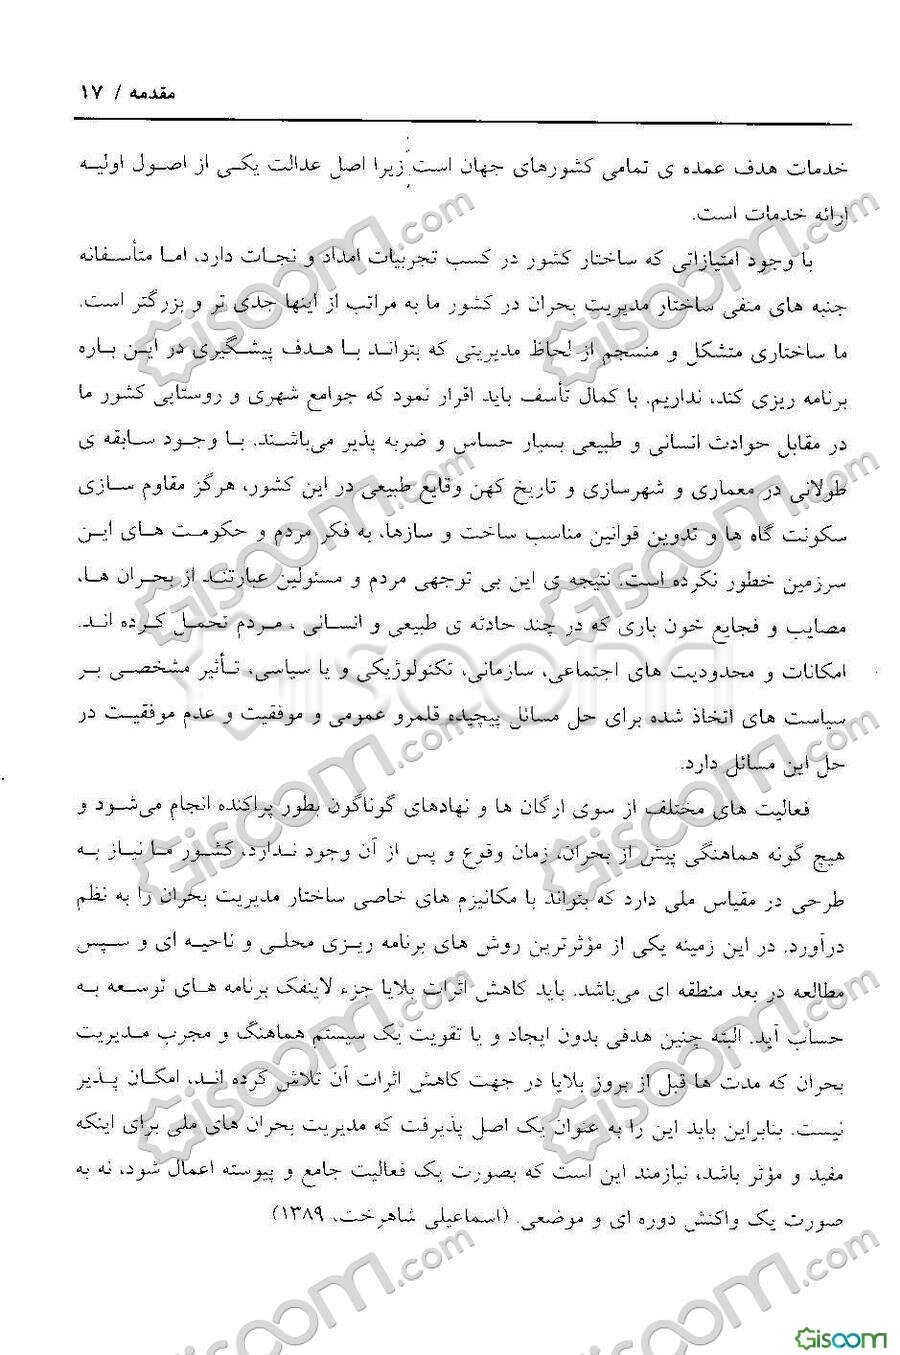 مقدمه / ۱۷
خدمات هدف عمده ی تمامی کشورهای جهان است زیرا اصل عدالت یکی از اصول اولیه
ارائه خدمات است.
با وجود امتیازاتی که ساختار کشور در کسب تجربیات امداد و نجات دارد، اما متأسفانه
جنبه های منفی ساختار مدیریت بحران در کشور ما به مراتب از اینها جدی تر و بزرگتر است.
ما ساختاری متشکل و منسجم از لحاظ مدیریتی که بتواند با هدف پیشگیری در این باره
برنامه ریزی کند، نداریم. با کمال تأسف باید اقرار نمود که جوامع شهری و روستایی کشور ما
در مقابل حوادث انسانی و طبیعی بسیار حساس و ضربه پذیر می‌باشند. با وجود سابقه ی
طولانی در معماری و شهرسازی و تاریخ کهن وقایع طبیعی در این کشور، هرگز مقاوم سازی
سکونت گاه ها و تدوین قوانین مناسب ساخت و سازها، به فکر مردم و حکومت های این
سرزمین خطور نکرده است. نتیجه ی این بی توجهی مردم و مسئولین عبارتند از بحران ها،
مصایب و فجایع خون باری که در چند حادثه ی طبیعی و انسانی ، مردم تحمل کرده اند.
امکانات و محدودیت های اجتماعی، سازمانی، تکنولوژیکی و یا سیاسی، تأثیر مشخصی بر
سیاست های اتخاذ شده برای حل مسائل پیچیده قلمرو عمومی و موفقیت و عدم موفقیت در
حل این مسائل دارد.
فعالیت های مختلف از سوی ارگان ها و نهادهای گوناگون بطور پراکنده انجام می‌شود و
هیچ گونه هماهنگی پیش از بحران، زمان وقوع و پس از آن وجود ندارد، کشور ما نیاز به
طرحی در مقیاس ملی دارد که بتواند با مکانیزم های خاصی ساختار مدیریت بحران را به نظم
درآورد. در این زمینه یکی از مؤثرترین روش های برنامه ریزی محلی و ناحیه ای و سپس
مطالعه در بعد منطقه ای می‌باشد. باید کاهش اثرات بلایا جزء لاینفک برنامه های توسعه به
حساب آید. البته چنین هدفی بدون ایجاد و یا تقویت یک سیستم هماهنگ و مجرب مدیریت
بحران که مدت ها قبل از بروز بلایا در جهت کاهش اثرات آن تلاش کرده اند، امکان پذیر
نیست. بنابراین باید این را به عنوان یک اصل پذیرفت که مدیریت بحران های ملی برای اینکه
مفید و مؤثر باشد، نیازمند این است که بصورت یک فعالیت جامع و پیوسته اعمال شود، نه به
صورت یک واکنش دوره ای و موضعی. (اسماعیلی شاهرخت، ۱۳۸۹)
Gisoom